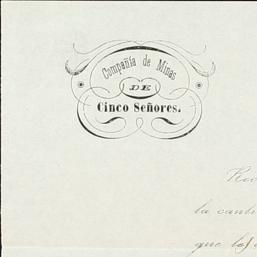 Compañía de Minas
DE
Cinco Señores.
la
que los